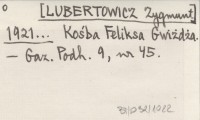 [LUBERTOWICZ Zygmunt]
1921... Kośba Feliksa Gwiżdża.
— Gaz. Podh. 9, nr 45.